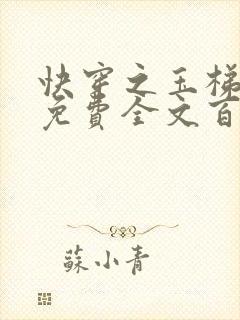 快穿之玉梯
免費全文百
蘇小青